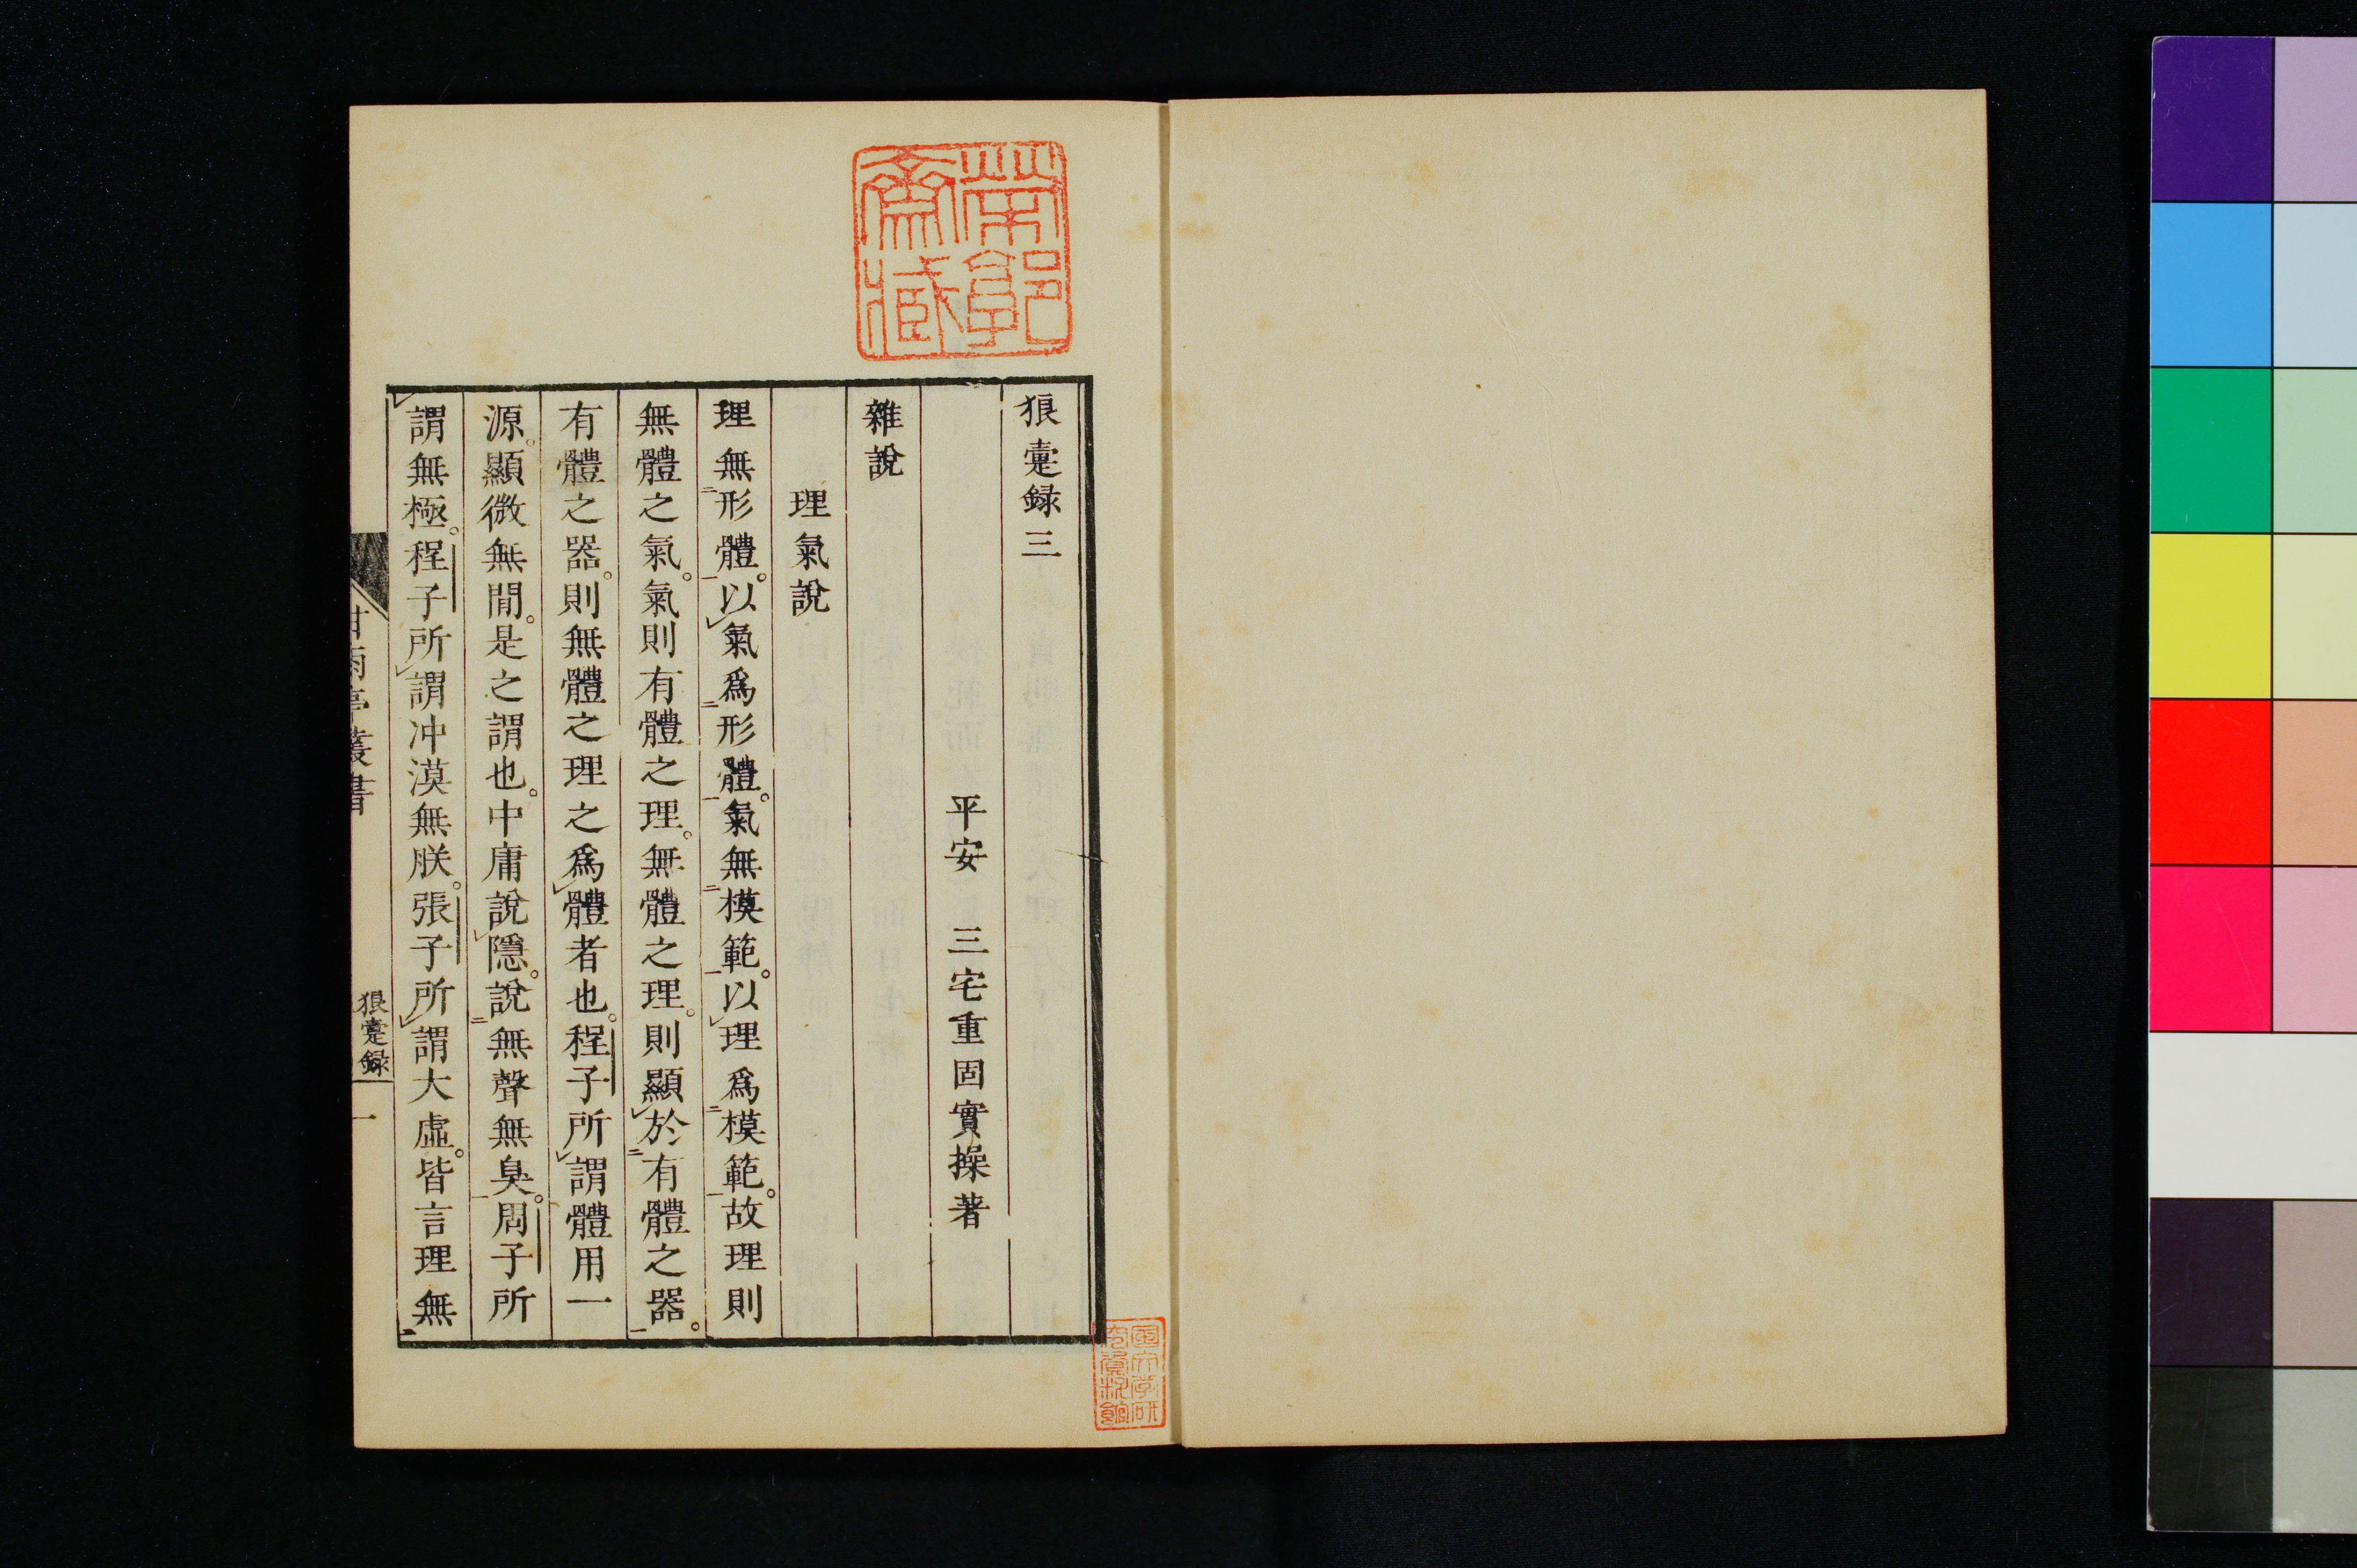 狼疐録三
平安　三宅重固實操著
雜說
理氣說
理無形體。以氣爲形體。氣無模範。以理爲模範。故理則
無體之氣。氣則有體之理。無體之理。則顯於有體之器。
有體之器。則無體之理之爲體者也。程子所謂體用一
源。顯微無閒。是之謂也。中庸說隱。說無聲無臭。周子所
謂無極。程子所謂冲漠無朕。張子所謂大虛。皆言理無
甘雨亭叢書
狼疐録
一